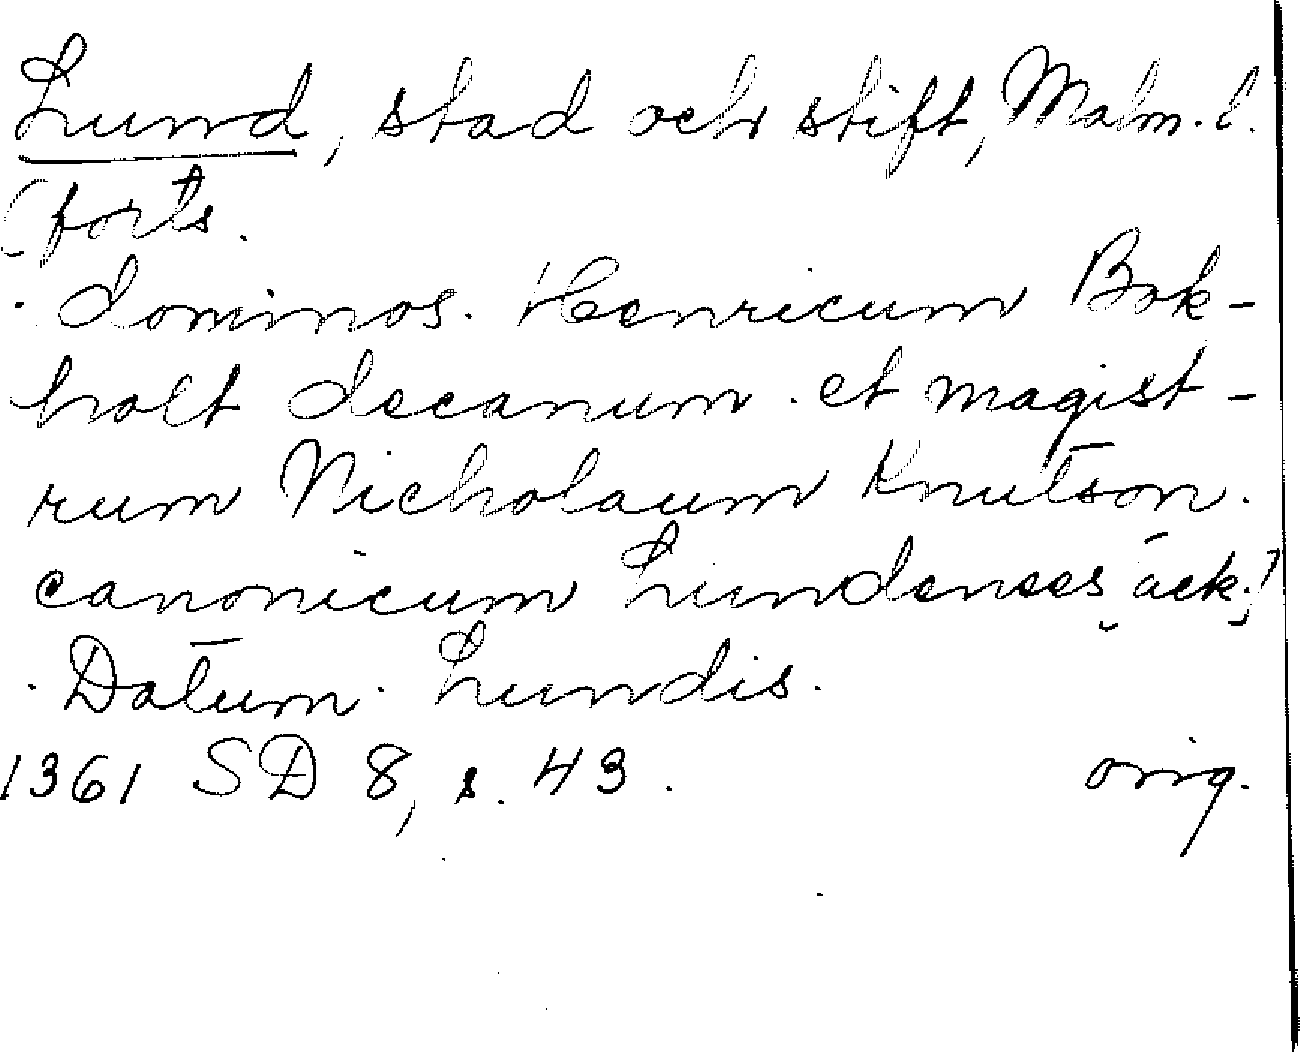 Lund, stad och stift, Malm. l.
(forts.
. dominos. Henricum Bok-
holt decanum . et magist-
rum Nicholaum Knutson.
canonicum Lundenses [ack.]
. Datum . Lundis.
1361 SD 8, s. 43. orig.